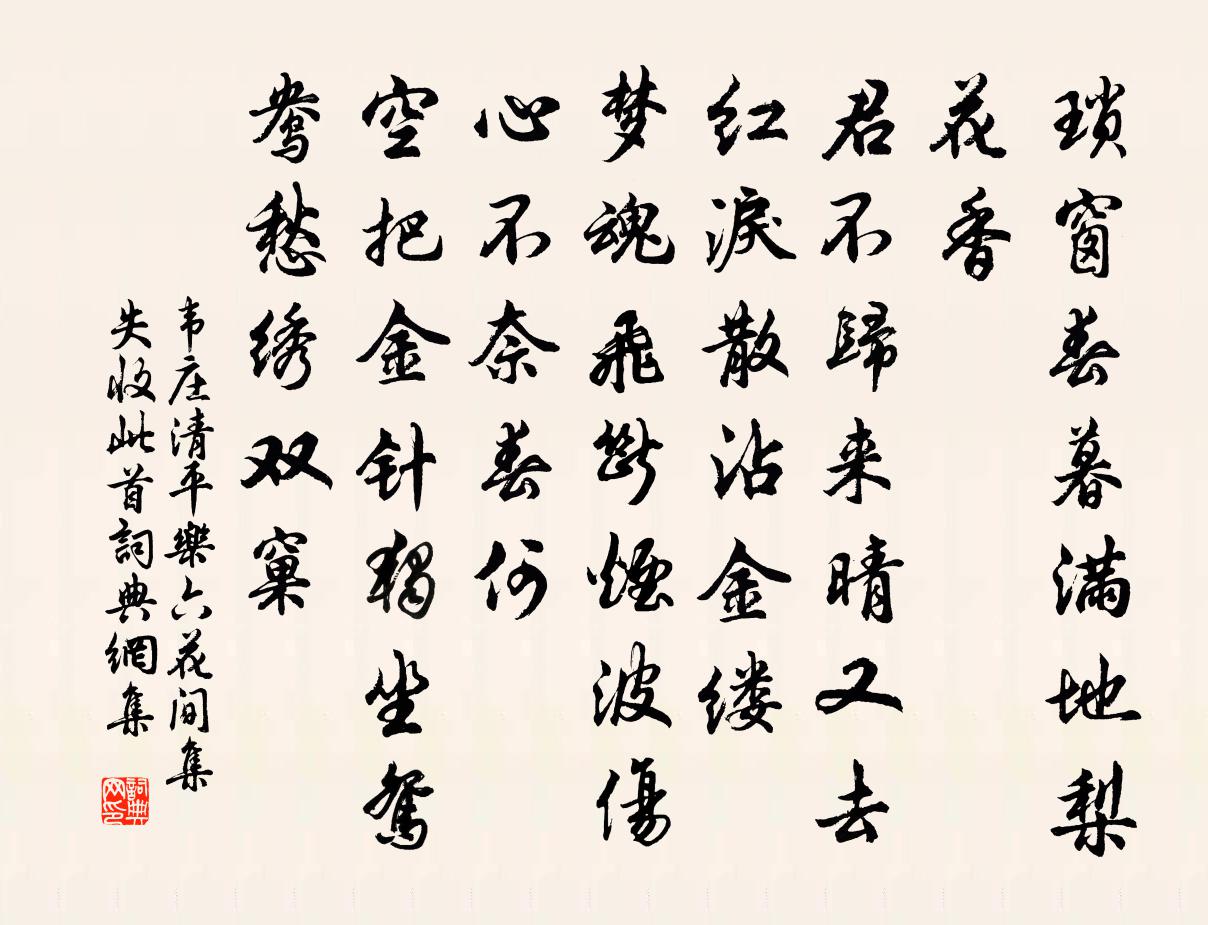 瑣窗春暮满地梨
花香
君不歸来晴又去
红淚散沾金缕
梦魂飛斷煙波傷
心不奈春何
空把金针獨坐鸳
鸯愁绣双窠
韦庄清平樂六花间集
失收此首詞典網集
詞典网印